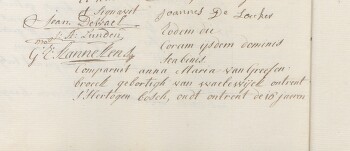 d'Honavet Joannes De Larker
Jean Dessael Eodem die
J. B. Linden Coram ysdem dominis
G: E: Hanneken Scabinis
Comparuit anna Maria van Greefen
broeck gebortigh van waelewyck ontrent
S'Hertogen-bosch, oudt ontrent de 18 jaeren